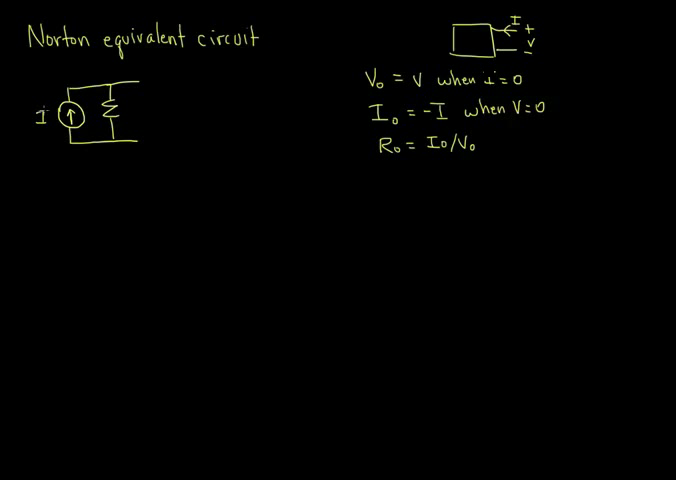 Norton equivalent circuit
I
+
V
-
V₀ = V when i = 0
I₀ = -I when V = 0
R₀ = I₀/V₀
I